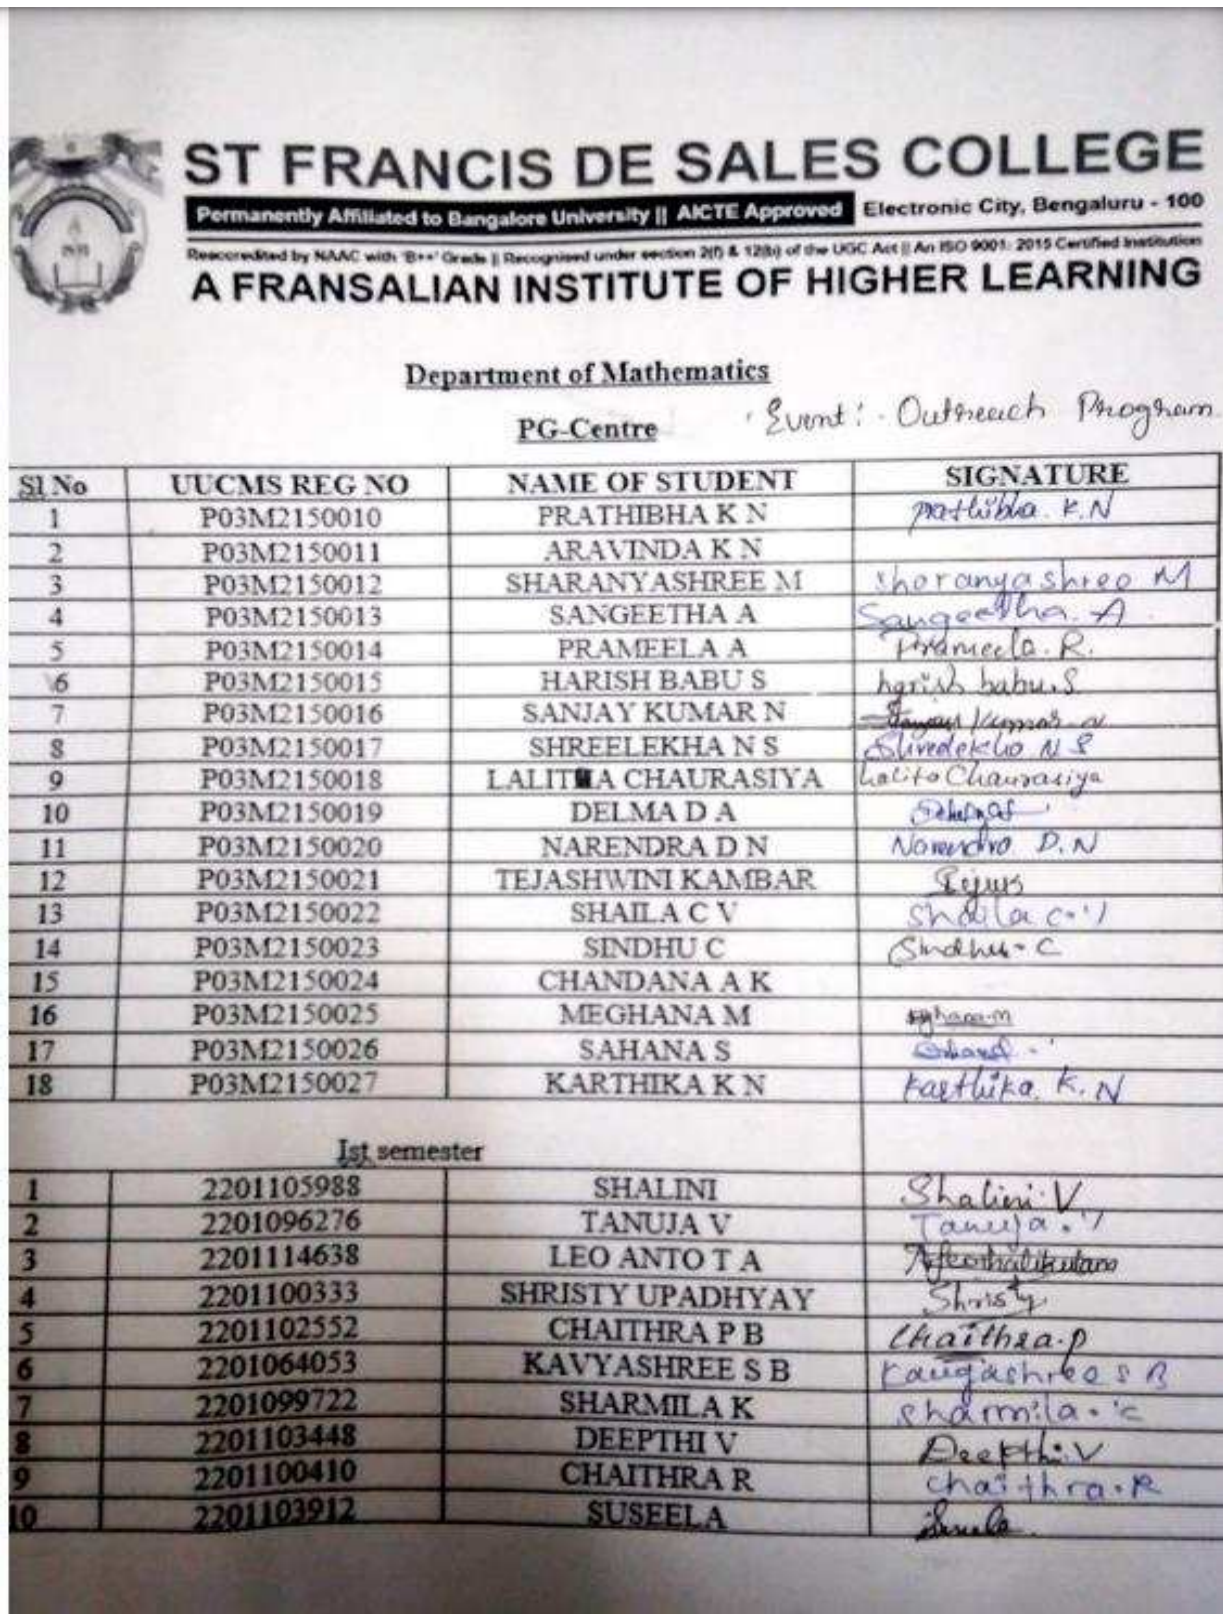 ST FRANCIS DE SALES COLLEGE
Permanently Affiliated to Bangalore University || AICTE Approved Electronic City, Bengaluru - 100
Reaccredited by NAAC with 'B++' Grade || Recognised under section 2(f) & 12(b) of the UGC Act || An ISO 9001: 2015 Certified Institution
A FRANSALIAN INSTITUTE OF HIGHER LEARNING
Department of Mathematics
PG-Centre Event:- Outreach Program
Sl No UUCMS REG NO NAME OF STUDENT SIGNATURE
1 P03M2150010 PRATHIBHA K N prathibha. K.N
2 P03M2150011 ARAVINDA K N
3 P03M2150012 SHARANYASHREE M Sharanyashree M
4 P03M2150013 SANGEETHA A Sangeetha. A
5 P03M2150014 PRAMEELA A Prameela. R.
6 P03M2150015 HARISH BABU S harish babu.S
7 P03M2150016 SANJAY KUMAR N Sanjay Kumar. N
8 P03M2150017 SHREELEKHA N S Shreelekha N S
9 P03M2150018 LALITHA CHAURASIYA Lalita Chaurasiya
10 P03M2150019 DELMA D A
11 P03M2150020 NARENDRA D N Narendra D.N
12 P03M2150021 TEJASHWINI KAMBAR
13 P03M2150022 SHAILA C V Shaila C.V
14 P03M2150023 SINDHU C Sindhu. C
15 P03M2150024 CHANDANA A K
16 P03M2150025 MEGHANA M
17 P03M2150026 SAHANA S
18 P03M2150027 KARTHIKA K N Karthika. K.N
Ist semester
1 2201105988 SHALINI Shalini.V
2 2201096276 TANUJA V Tanuja.V
3 2201114638 LEO ANTO T A
4 2201100333 SHRISTY UPADHYAY Shristy
5 2201102552 CHAITHRA P B Chaithra.p
6 2201064053 KAVYASHREE S B Kavyashree S B
7 2201099722 SHARMILA K Sharmila.K
8 2201103448 DEEPTHI V Deepthi.V
9 2201100410 CHAITHRA R Chaithra.R
10 2201103912 SUSEELA